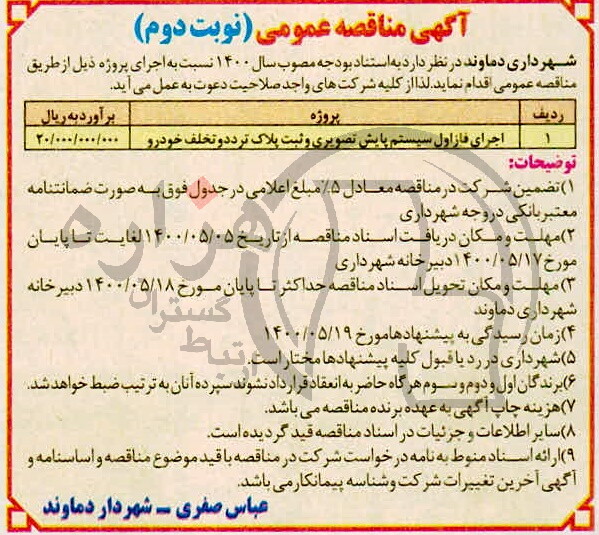 آگهی مناقصه عمومی (نوبت دوم)
شهرداری دماوند در نظر دارد به استناد بودجه مصوب سال ۱۴۰۰ نسبت به اجرای پروژه ذیل از طریق
مناقصه عمومی اقدام نماید. لذا از کلیه شرکت های واجد صلاحیت دعوت به عمل می آید.
ردیف پروژه برآورد به ریال
۱ اجرای فاز اول سیستم پایش تصویری و ثبت پلاک تردد و تخلف خودرو ۲۰/۰۰۰/۰۰۰/۰۰۰
توضیحات:
۱) تضمین شرکت در مناقصه معادل ۵٪ مبلغ اعلامی در جدول فوق به صورت ضمانتنامه
معتبر بانکی در وجه شهرداری
۲) مهلت و مکان دریافت اسناد مناقصه از تاریخ ۱۴۰۰/۰۵/۰۵ لغایت تا پایان
مورخ ۱۴۰۰/۰۵/۱۷ دبیرخانه شهرداری
۳) مهلت و مکان تحویل اسناد مناقصه حداکثر تا پایان مورخ ۱۴۰۰/۰۵/۱۸ دبیرخانه
شهرداری دماوند
۴) زمان رسیدگی به پیشنهادها مورخ ۱۴۰۰/۰۵/۱۹
۵) شهرداری در رد یا قبول کلیه پیشنهادها مختار است.
۶) برندگان اول و دوم و سوم هرگاه حاضر به انعقاد قرارداد نشوند سپرده آنان به ترتیب ضبط خواهد شد.
۷) هزینه چاپ آگهی به عهده برنده مناقصه می باشد.
۸) سایر اطلاعات و جزئیات در اسناد مناقصه قید گردیده است.
۹) ارائه اسناد منوط به نامه درخواست شرکت در مناقصه با قید موضوع مناقصه و اساسنامه و
آگهی آخرین تغییرات شرکت و شناسه پیمانکار می باشد.
عباس صفری - شهردار دماوند
هزاره
گستران
ارتباط